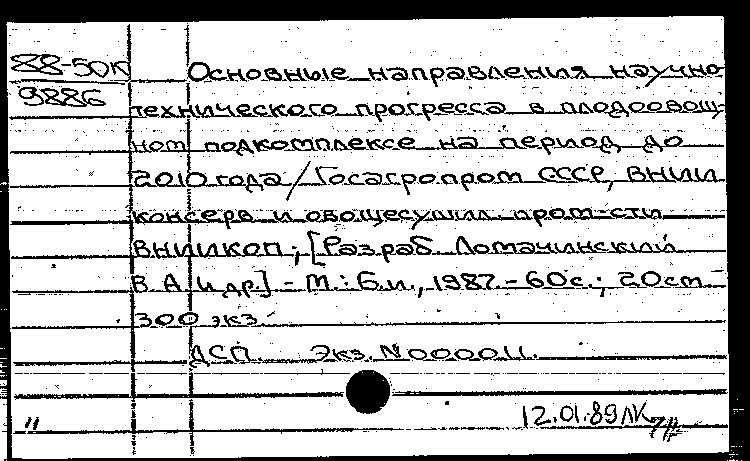 88-50К
9886
Основные направления научно-
технического прогресса в плодоовощ-
ном подкомплексе на период до
2010 года / Госагропром СССР, ВНИИ
консерв. и овощесушил. пром-сти
ВНИИКОП; [Разраб. Ломачинский
В.А. и др.] - М.: Б.и., 1987. - 60с.; 20см -
300 экз.
ДСП. Экз. N 000011.
12.01.89 ЛК